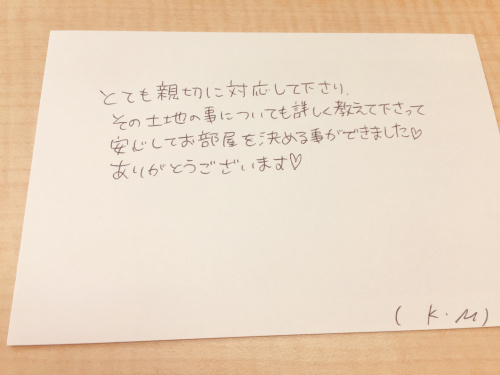 とても親切に対応して下さり、
その土地の事についても詳しく教えて下さって
安心してお部屋を決める事ができました♡
ありがとうございます♡
( K.M )